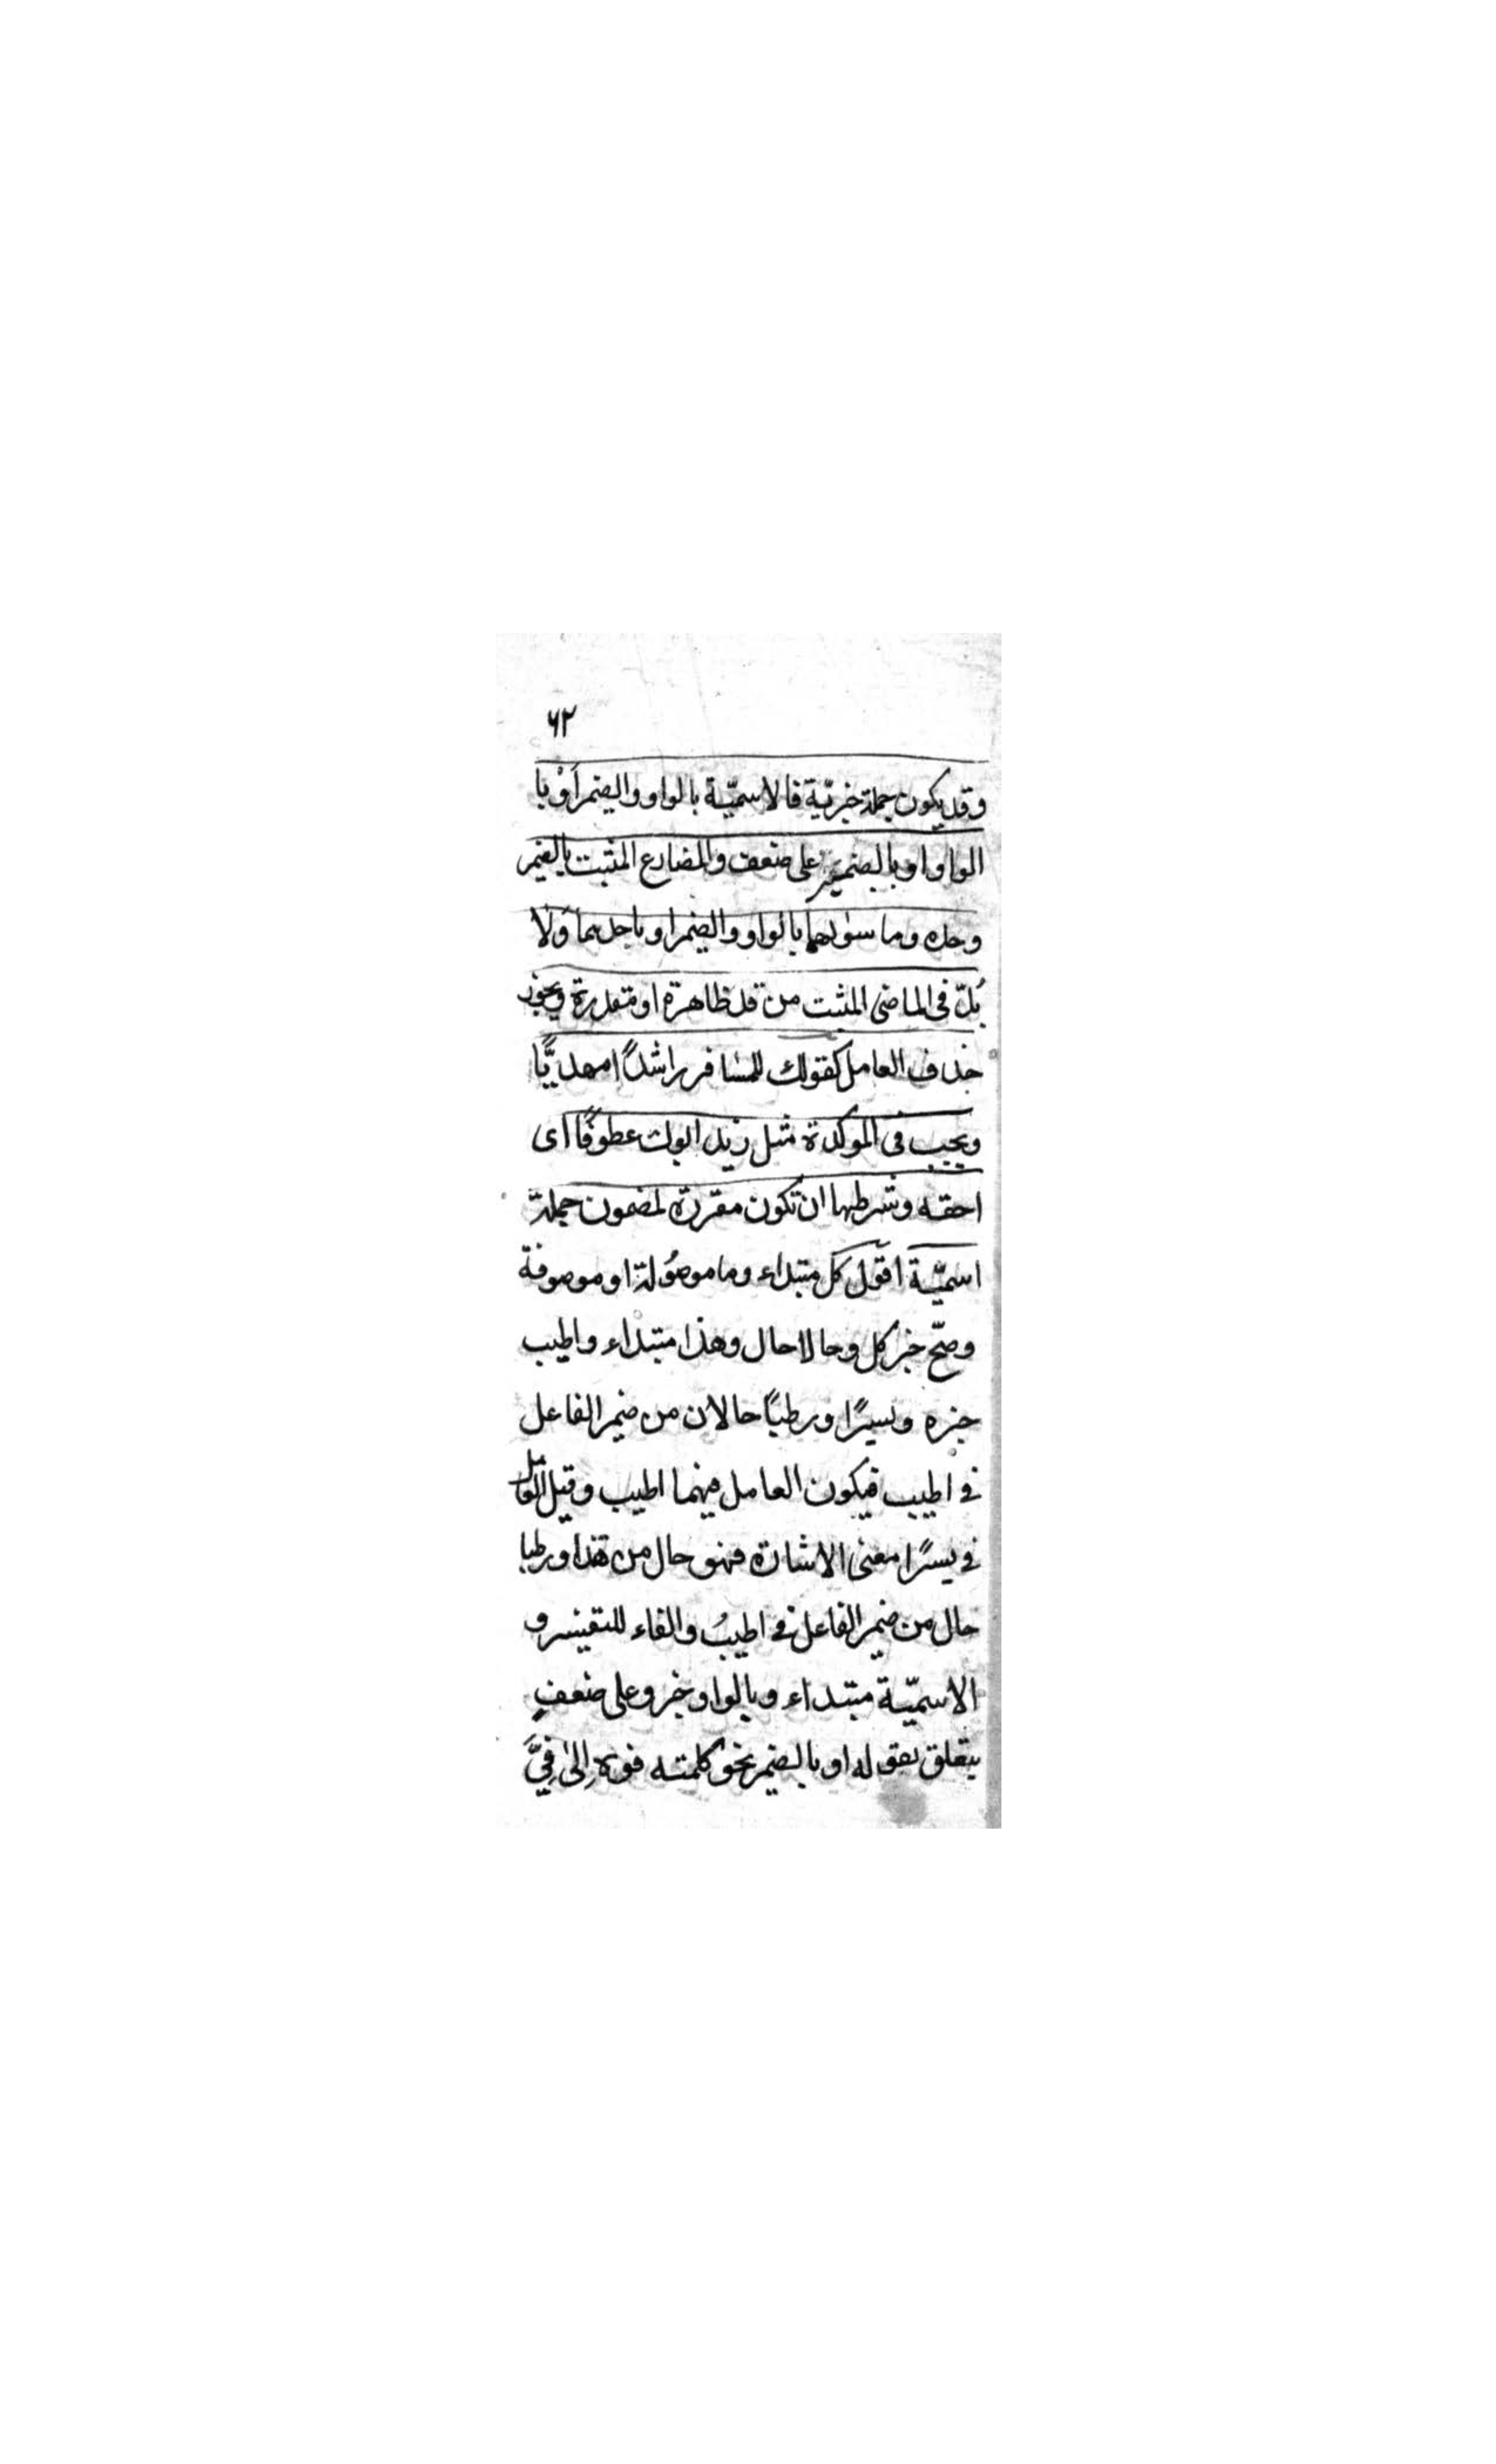 ٦٢
وقد يكون جملة خبريّة فالاسميّة بالواو والضمير أوْ با
الواو او بالضمير على ضعف والمضارع المثبت بالضمير
وحده وما سواهما بالواو والضمير او باحدهما وَلا
بُدّ فى الماضى المثبت من قد ظاهرة او مقدرة ويجوز
حذف العامل كقولك للمسافر راشدًا مهديًّا
ويجب فى الموكدة مثل زيد ابوك عطوفًا اى
احقه وشرطها ان تكون مقررة لمضمون جملة
اسميّة اقول كل مبتداء وما موصُولة او موصوفة
وصحّ خبر كل وحالا حال وهذا مبتداء واطيب
خبره وبسرًا ورطبًا حالان من ضمير الفاعل
فى اطيب فيكون العامل فيهما اطيب وقيل العامل
فى بسرًا معنى الاشارة فهو حال من هذا ورطبا
حال من ضمير الفاعل فى اطيبُ والفاء للتفسير و
الاسميّة مبتداء وبالواو خبر وعلى ضعفٍ
يتعلق بقوله او بالضمير نحو كلمته فوه إلىٰ فِيَّ